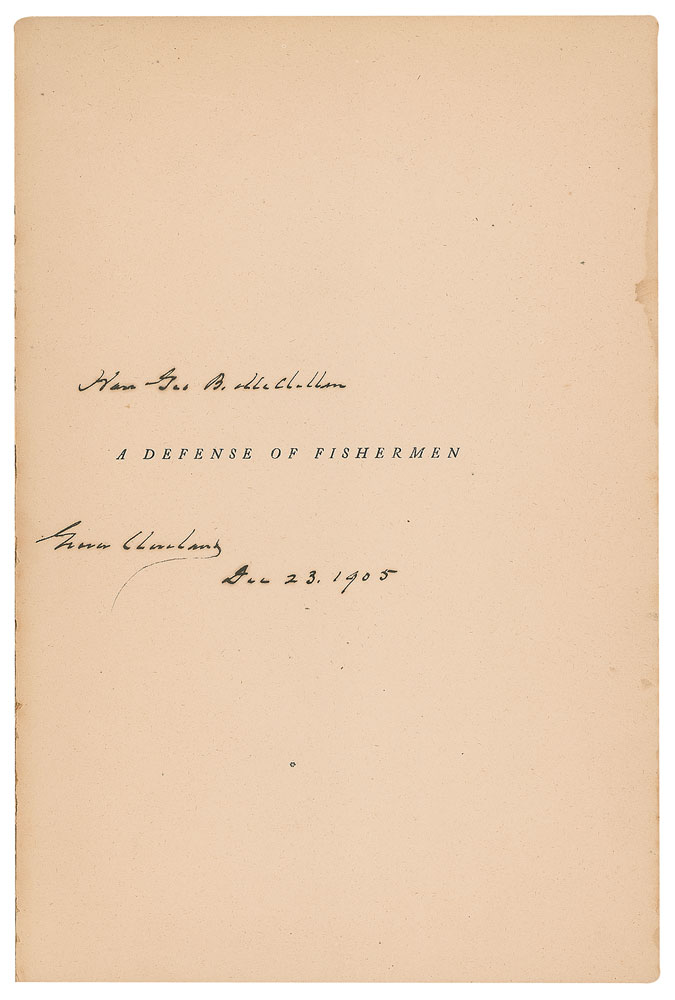 Hon Geo B. McClellan
A DEFENSE OF FISHERMEN
Grover Cleveland
Dec 23. 1905